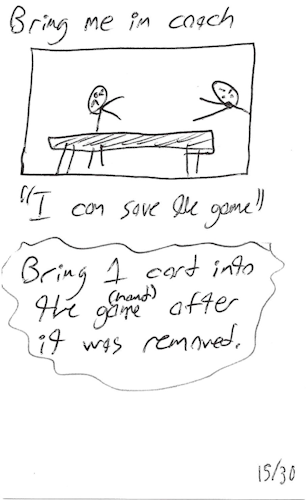 Bring me in coach
"I can save the game"
Bring 1 card into
the game (hand) after
it was removed.
15/30